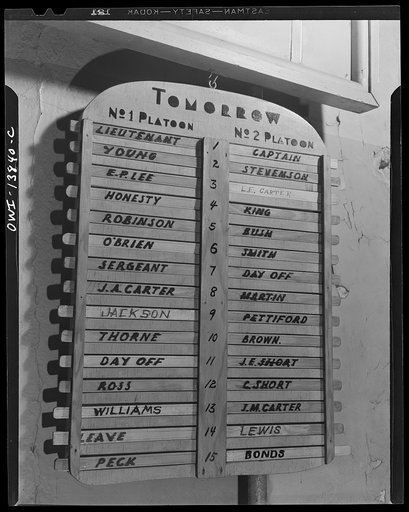 EASTMAN—SAFETY—KODAK
121
OWI-13840-C
TOMORROW
No 1 PLATOON
No 2 PLATOON
LIEUTENANT 1 CAPTAIN
YOUNG 2 STEVENSON
E.P. LEE 3 L.E. CARTER
HONESTY 4 KING
ROBINSON 5 BUSH
O'BRIEN 6 SMITH
SERGEANT 7 DAY OFF
J.A. CARTER 8 MARTIN
JACKSON 9 PETTIFORD
THORNE 10 BROWN.
DAY OFF 11 J.E. SHORT
ROSS 12 C. SHORT
WILLIAMS 13 J.M. CARTER
LEAVE 14 LEWIS
PECK 15 BONDS